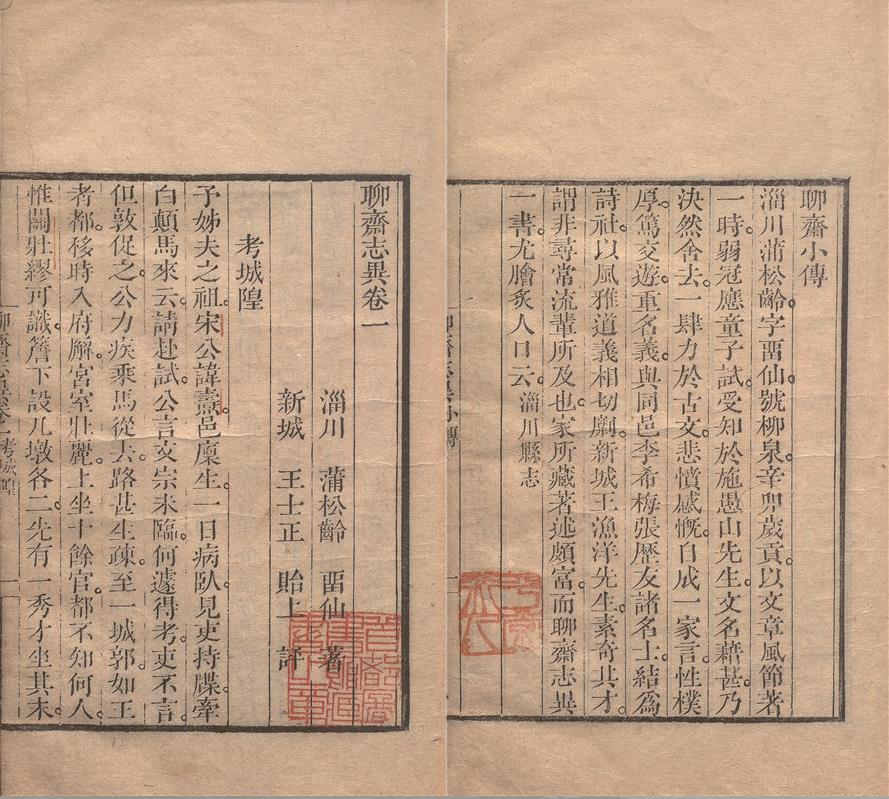 聊齋小傳
淄川蒲松齡字畱仙號柳泉辛卯歲貢以文章風節著
一時弱冠應童子試受知於施愚山先生文名藉甚乃
決然舍去一肆力於古文悲憤感慨自成一家言性樸
厚篤交遊重名義與同邑李希梅張歷友諸名士結爲
詩社以風雅道義相切劘新城王漁洋先生素奇其才
謂非尋常流輩所及也家所藏著述頗富而聊齋志異
一書尤膾炙人口云淄川縣志
聊齋志異小傳
一
聊齋志異卷一
淄川 蒲松齡 畱仙 著
新城 王士正 貽上 評
考城隍
予姊夫之祖宋公諱燾邑廩生一日病臥見吏持牒牽
白顛馬來云請赴試公言文宗未臨何遽得考吏不言
但敦促之公力疾乘馬從去路甚生疎至一城郭如王
者都移時入府廨宮室壯麗上坐十餘官都不知何人
惟關壯繆可識簷下設几墩各二先有一秀才坐其末
聊齋志異卷一 考城隍
一